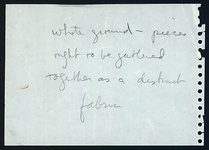 white ground – pieces
right to be gathered
together as a distinct
fabric